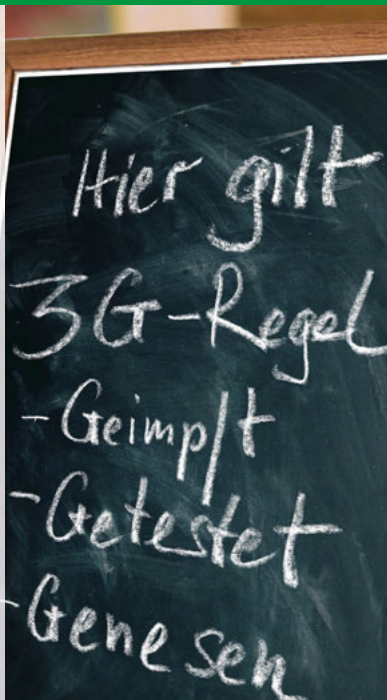 Hier gilt
3G-Regel
- Geimpft
- Getestet
- Genesen